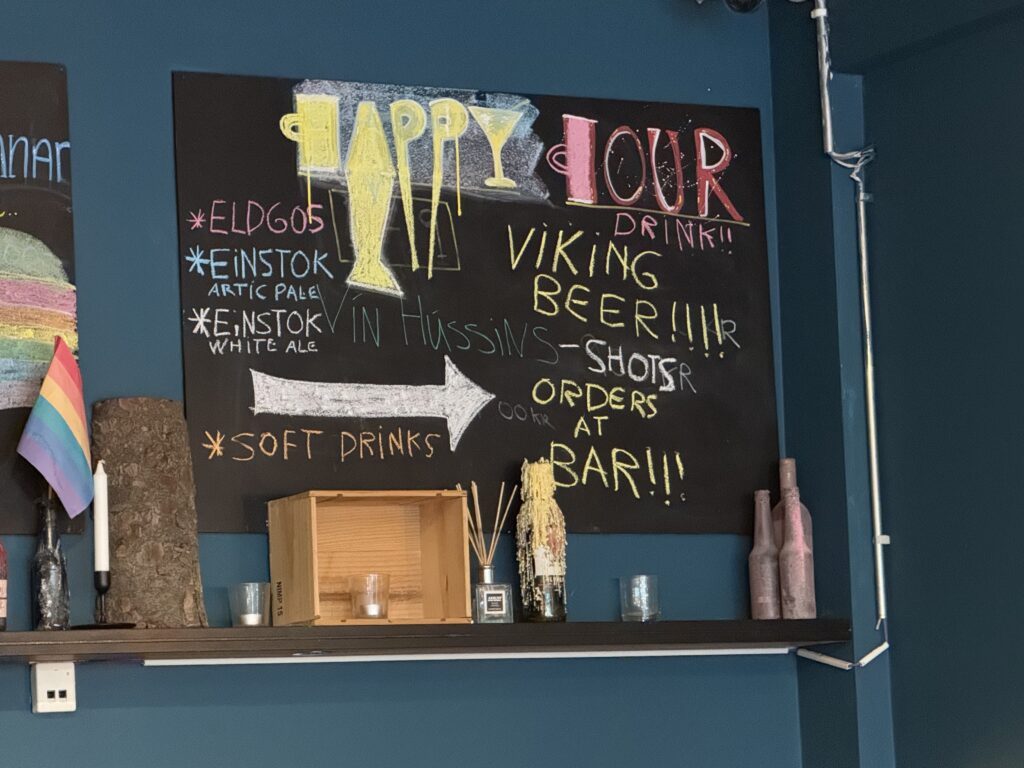 HAPPY HOUR
DRINK!!
*ELDGOS
*EINSTOK
ARTIC PALE
*EINSTOK
WHITE ALE
Vín Hússins
*SOFT DRINKS
VIKING
BEER!!!!! KR
-SHOTS KR
00 KR
ORDERS
AT
BAR!!!